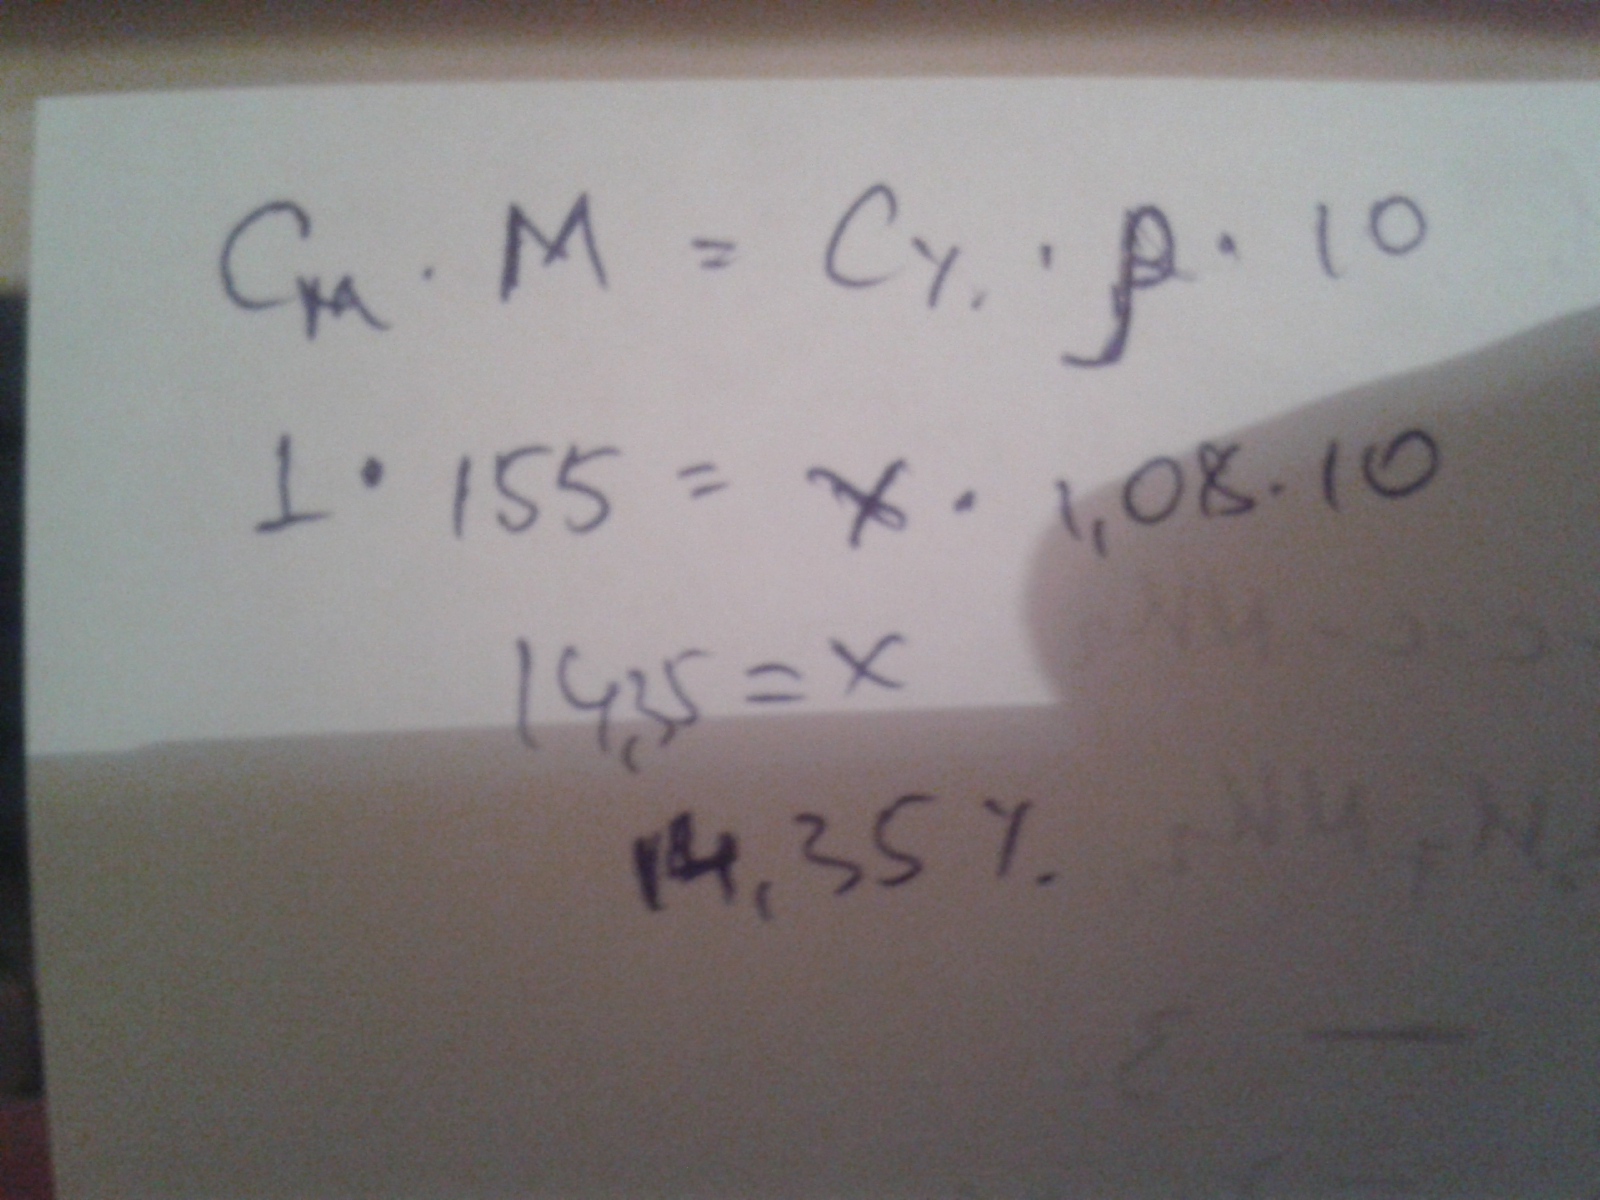 Cм · M = C%. · ρ · 10
1 · 155 = x · 1,08 · 10
14,35 = x
14,35 %.